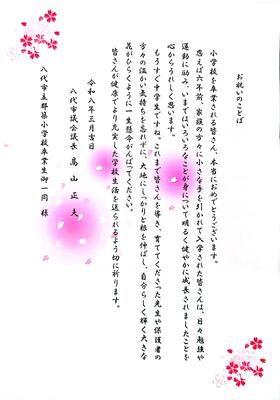 お祝いのことば
小学校を卒業される皆さん、本当におめでとうございます。
思えば六年前、家族の方々に小さな手を引かれて入学された皆さんは、日々勉強や
運動に励み、いまではいろいろなことが身について明るく健やかに成長されましたことを
心からうれしく思います。
もうすぐ中学生ですね。これまで皆さんを導き、育ててくださった先生や保護者の
方々の温かい気持ちを忘れずに、大地にしっかりと根を伸ばし、自分らしく輝く大きな
花がひらくように一生懸命がんばってください。
皆さんが健康でより充実した学校生活を送られるよう切に祈ります。
令和八年三月吉日
八代市議会議長 髙山正夫
八代市立郡築小学校卒業生御一同 様